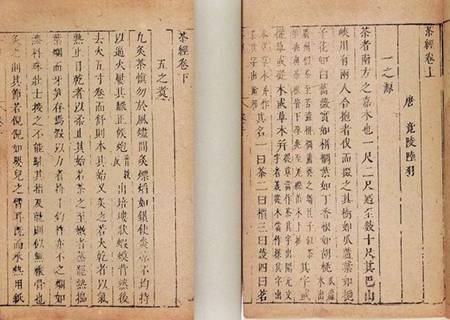 茶經卷上
唐 竟陵陸羽
一之源
茶者南方之嘉木也一尺二尺迺至數十尺其巴山
峽川有兩人合抱者伐而掇之其樹如瓜蘆葉如梔
子花如白薔薇實如栟櫚蒂如丁香根如胡桃
其字或
從草或從木或草木并
其名一曰茶二曰檟三曰蔎四曰茗
茶經卷下
五之煑
凡炙茶慎勿於風燼間炙熛焰如鑽使炎涼不均持
以逼火屢其飜正候炮出培塿狀蝦蟇背然後
去火五寸卷而舒則本其始又炙之若火乾者以氣
熟止日乾者以柔止其始若茶之至嫩者蒸罷熱搗
葉爛而牙笋存焉假以力者持千鈞杵亦不之爛如
漆科珠壯士接之不能駐其指及就則似無穰骨也
炙之則其節若倪倪如嬰兒之臂耳既而承熱用紙